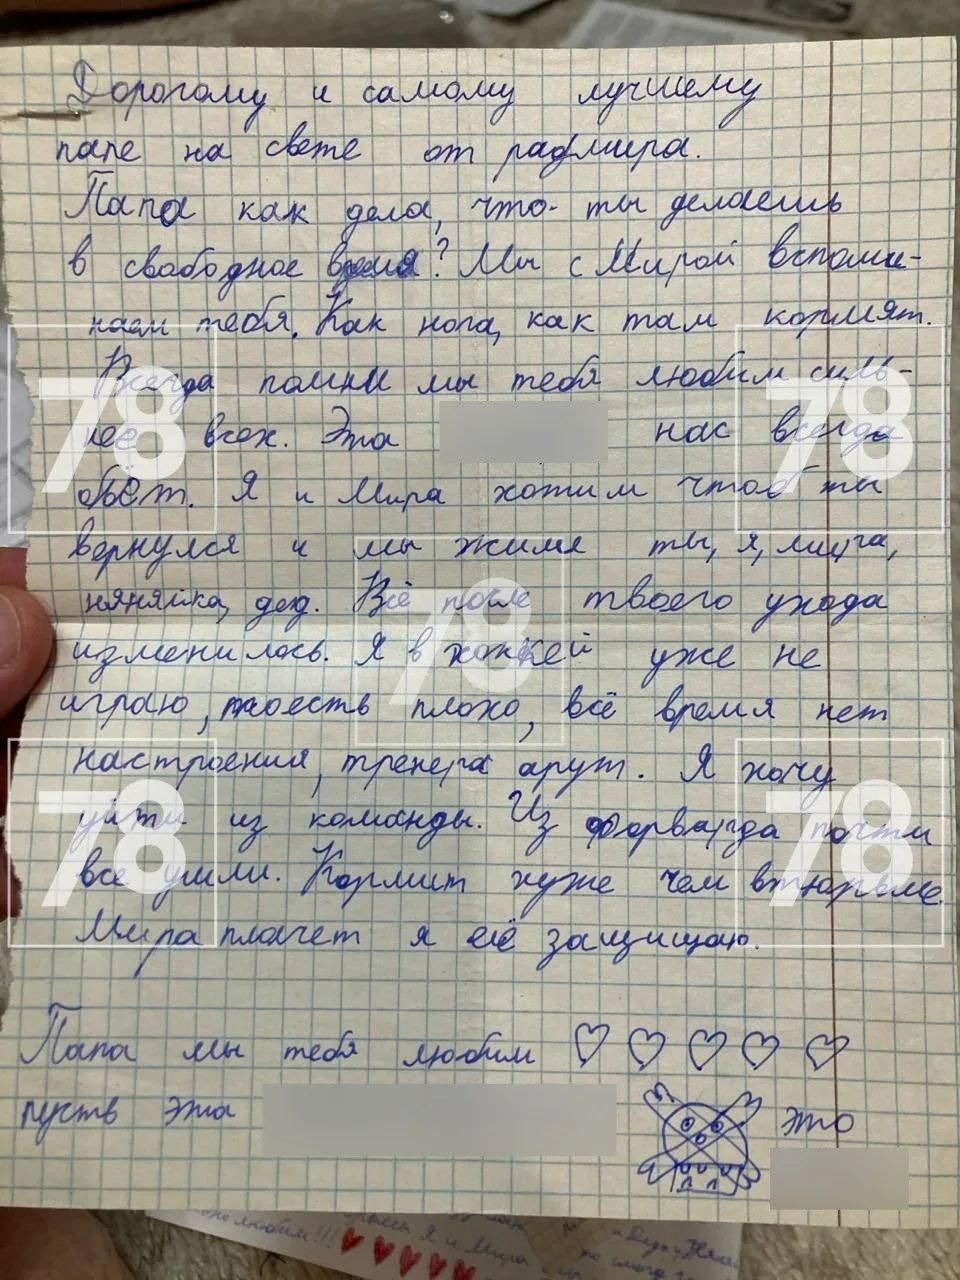 Дорогому и самому лучшему
папе на свете от радмира.
Папа как дела, что ты делаешь
в свободное время? Мы с Мирой вспоми-
наем тебя. Как нога, как там кормят.
Всегда помни мы тебя любим силь-
нее всех. Эта нас всегда
обьёт. Я и Мира хотим чтоб ты
вернулся и мы жили ты, я,
няняйка, дед. Всё после твоего ухода
изменилось. Я в хоккей уже не
играю, тоесть плохо, всё время нет
настроения, тренера орут. Я хочу
уйти из команды. Из форварда почти
все ушли. Кормит хуже чем втюрьме.
Мира плачет я её защищаю.
Папа мы тебя любим
пусть эта это
78
78
78
78
78
любим!!! Я и Мира